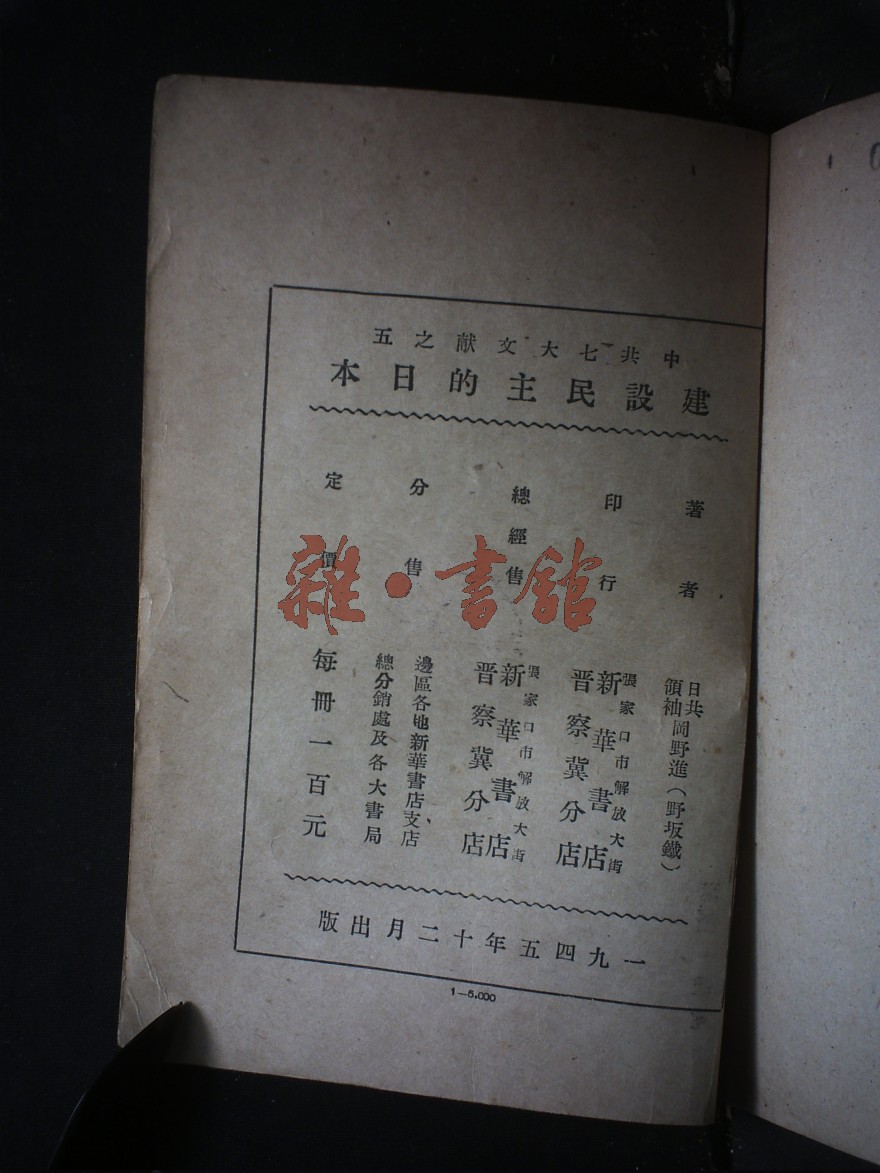 中共七大文献之五
建設民主的日本
著者
日共
領袖岡野進(野坂鐵)
印行
張家口市解放大街
新華書店
晋察冀分店
總經售
張家口市解放大街
新華書店
晋察冀分店
分售
邊區各地新華書店支店、
總分銷處及各大書局
定價
每冊一百元
一九四五年十二月出版
1—5.000
雜·書館